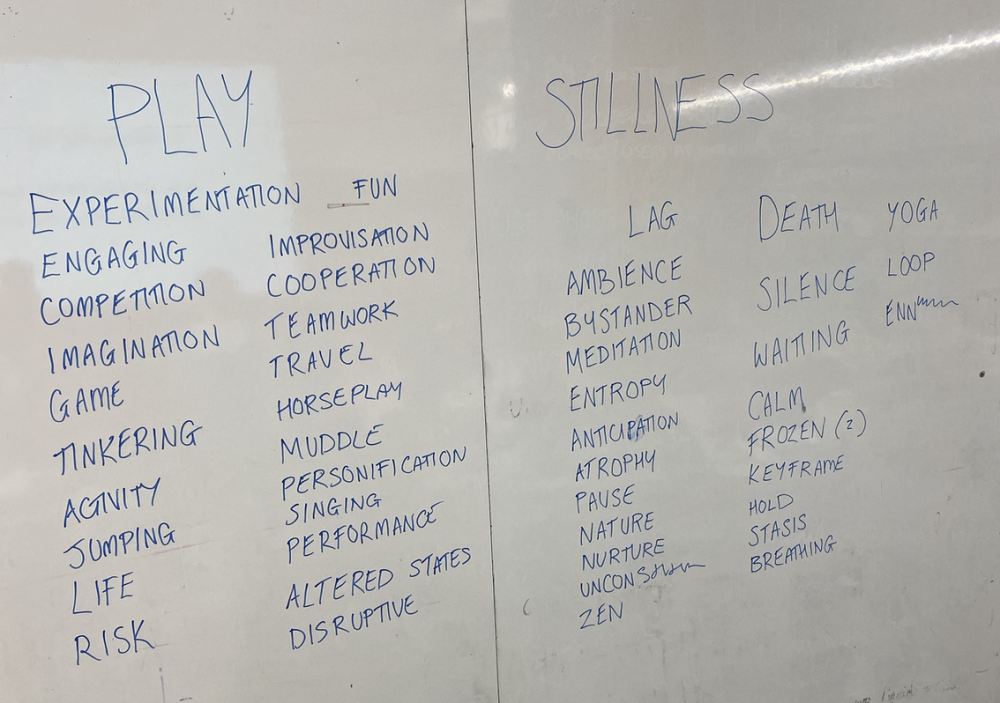 PLAY
EXPERIMENTATION
ENGAGING
COMPETITION
IMAGINATION
GAME
TINKERING
ACTIVITY
JUMPING
LIFE
RISK
FUN
IMPROVISATION
COOPERATION
TEAMWORK
TRAVEL
HORSEPLAY
MUDDLE
PERSONIFICATION
SINGING
PERFORMANCE
ALTERED STATES
DISRUPTIVE
STILLNESS
LAG
AMBIENCE
BYSTANDER
MEDITATION
ENTROPY
ANTICIPATION
ATROPHY
PAUSE
NATURE
NURTURE
ZEN
DEATH
SILENCE
WAITING
CALM
FROZEN (2)
KEYFRAME
HOLD
STASIS
BREATHING
YOGA
LOOP